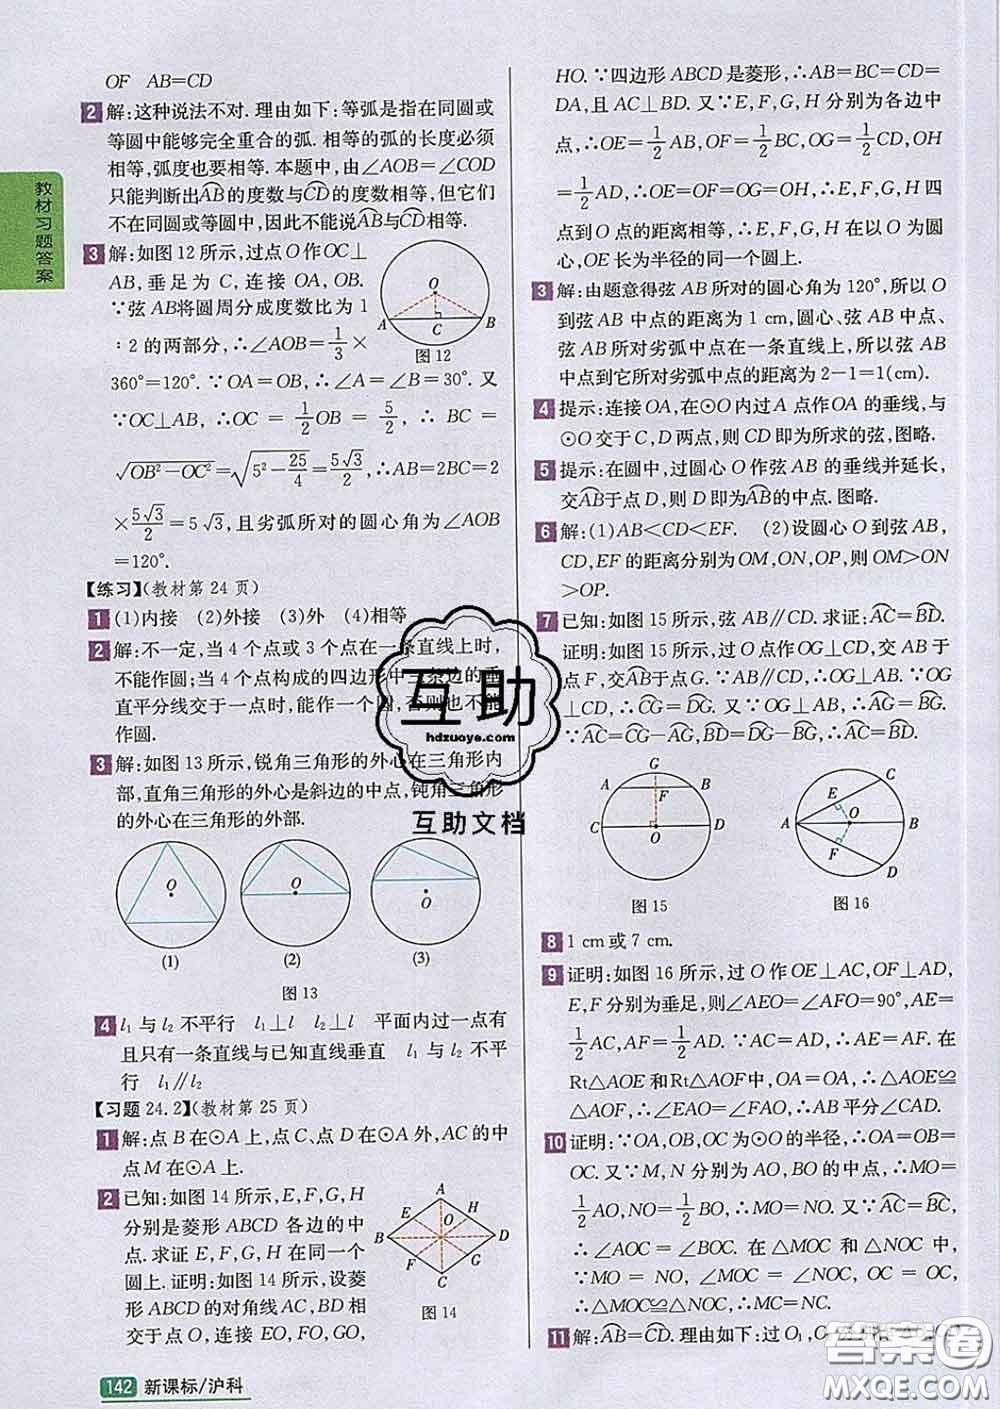 教材习题答案
OF AB=CD
2 解:这种说法不对.理由如下:等弧是指在同圆或
等圆中能够完全重合的弧.相等的弧的长度必须
相等,弧度也要相等.本题中,由∠AOB=∠COD
只能判断出A͡B的度数与C͡D的度数相等,但它们
不在同圆或等圆中,因此不能说A͡B与C͡D相等.
3 解:如图 12 所示,过点O作OC⊥
AB,垂足为 C,连接 OA,OB.
∵弦AB将圆周分成度数比为 1
:2 的两部分,∴∠AOB=1/3×
360°=120°.∵OA=OB,∴∠A=∠B=30°.又
∵OC⊥AB,∴OC=1/2OB=5/2,∴BC=
√(OB²-OC²)=√(5²-25/4)=5√3/2,∴AB=2BC=2
×5√3/2=5√3,且劣弧所对的圆心角为∠AOB
=120°.
O
A C B
图 12
【练习】(教材第 24 页)
1 (1)内接 (2)外接 (3)外 (4)相等
2 解:不一定,当 4 个点或 3 个点在一条直线上时,
不能作圆;当 4 个点构成的四边形中三条边的垂
直平分线交于一点时,能作一个圆,否则也不能
作圆.
3 解:如图 13 所示,锐角三角形的外心在三角形内
部,直角三角形的外心是斜边的中点,钝角三角形
的外心在三角形的外部.
O O O
(1) (2) (3)
图 13
4 l₁ 与 l₂ 不平行 l₁⊥l l₂⊥l 平面内过一点有
且只有一条直线与已知直线垂直 l₁ 与 l₂ 不平
行 l₁∥l₂
【习题 24.2】(教材第 25 页)
1 解:点 B 在⊙A 上,点 C、点 D 在⊙A 外,AC 的中
点 M 在⊙A 上.
2 已知:如图 14 所示,E,F,G,H
分别是菱形 ABCD 各边的中
点.求证 E,F,G,H 在同一个
圆上.证明:如图 14 所示,设菱
形 ABCD 的对角线 AC,BD 相
交于点 O,连接 EO,FO,GO,
A
E H
O
B D
F G
C
图 14
142 新课标/沪科
HO.∵四边形 ABCD 是菱形,∴AB=BC=CD=
DA,且 AC⊥BD.又∵E,F,G,H 分别为各边中
点,∴OE=1/2AB,OF=1/2BC,OG=1/2CD,OH
=1/2AD,∴OE=OF=OG=OH,∴E,F,G,H 四
点到 O 点的距离相等,∴E,F,G,H 在以 O 为圆
心,OE 长为半径的同一个圆上.
3 解:由题意得弦 AB 所对的圆心角为 120°,所以 O
到弦 AB 中点的距离为 1 cm,圆心、弦 AB 中点、
弦 AB 所对劣弧中点在一条直线上,所以弦 AB
中点到它所对劣弧中点的距离为 2-1=1(cm).
4 提示:连接 OA,在⊙O 内过 A 点作 OA 的垂线,与
⊙O 交于 C,D 两点,则 CD 即为所求的弦,图略.
5 提示:在圆中,过圆心 O 作弦 AB 的垂线并延长,
交A͡B于点 D,则 D 即为A͡B的中点.图略.
6 解:(1)AB<CD<EF. (2)设圆心 O 到弦 AB,
CD,EF 的距离分别为 OM,ON,OP,则 OM>ON
>OP.
7 已知:如图 15 所示,弦 AB∥CD.求证:A͡C=B͡D.
证明:如图 15 所示,过点 O 作 OG⊥CD,交 AB 于
点 F,交A͡B于点 G.∵AB∥CD,∴OG⊥AB.
∵OG⊥CD,∴C͡G=D͡G.又∵OG⊥AB,∴A͡G=B͡G.
∵A͡C=C͡G-A͡G,B͡D=D͡G-B͡G,∴A͡C=B͡D.
G
A F B
C O D
图 15
C
E
A O B
F
D
图 16
8 1 cm 或 7 cm.
9 证明:如图 16 所示,过 O 作 OE⊥AC,OF⊥AD,
E,F 分别为垂足,则∠AEO=∠AFO=90°,AE=
1/2AC,AF=1/2AD.∵AC=AD,∴AE=AF.在
Rt△AOE 和 Rt△AOF 中,OA=OA,∴△AOE≌
△AOF,∴∠EAO=∠FAO,∴AB 平分∠CAD.
10 证明:∵OA,OB,OC 为⊙O 的半径,∴OA=OB=
OC.又∵M,N 分别为 AO,BO 的中点,∴MO=
1/2AO,NO=1/2BO,∴MO=NO.又∵A͡C=B͡C,
∴∠AOC=∠BOC.在△MOC 和△NOC 中,
∵MO=NO,∠MOC=∠NOC,OC=OC,
∴△MOC≌△NOC,∴MC=NC.
11 解:A͡B=C͡D.理由如下:过 O₁,O
互助
hdzuoye.com
互助文档
答案圈
MXQE.COM